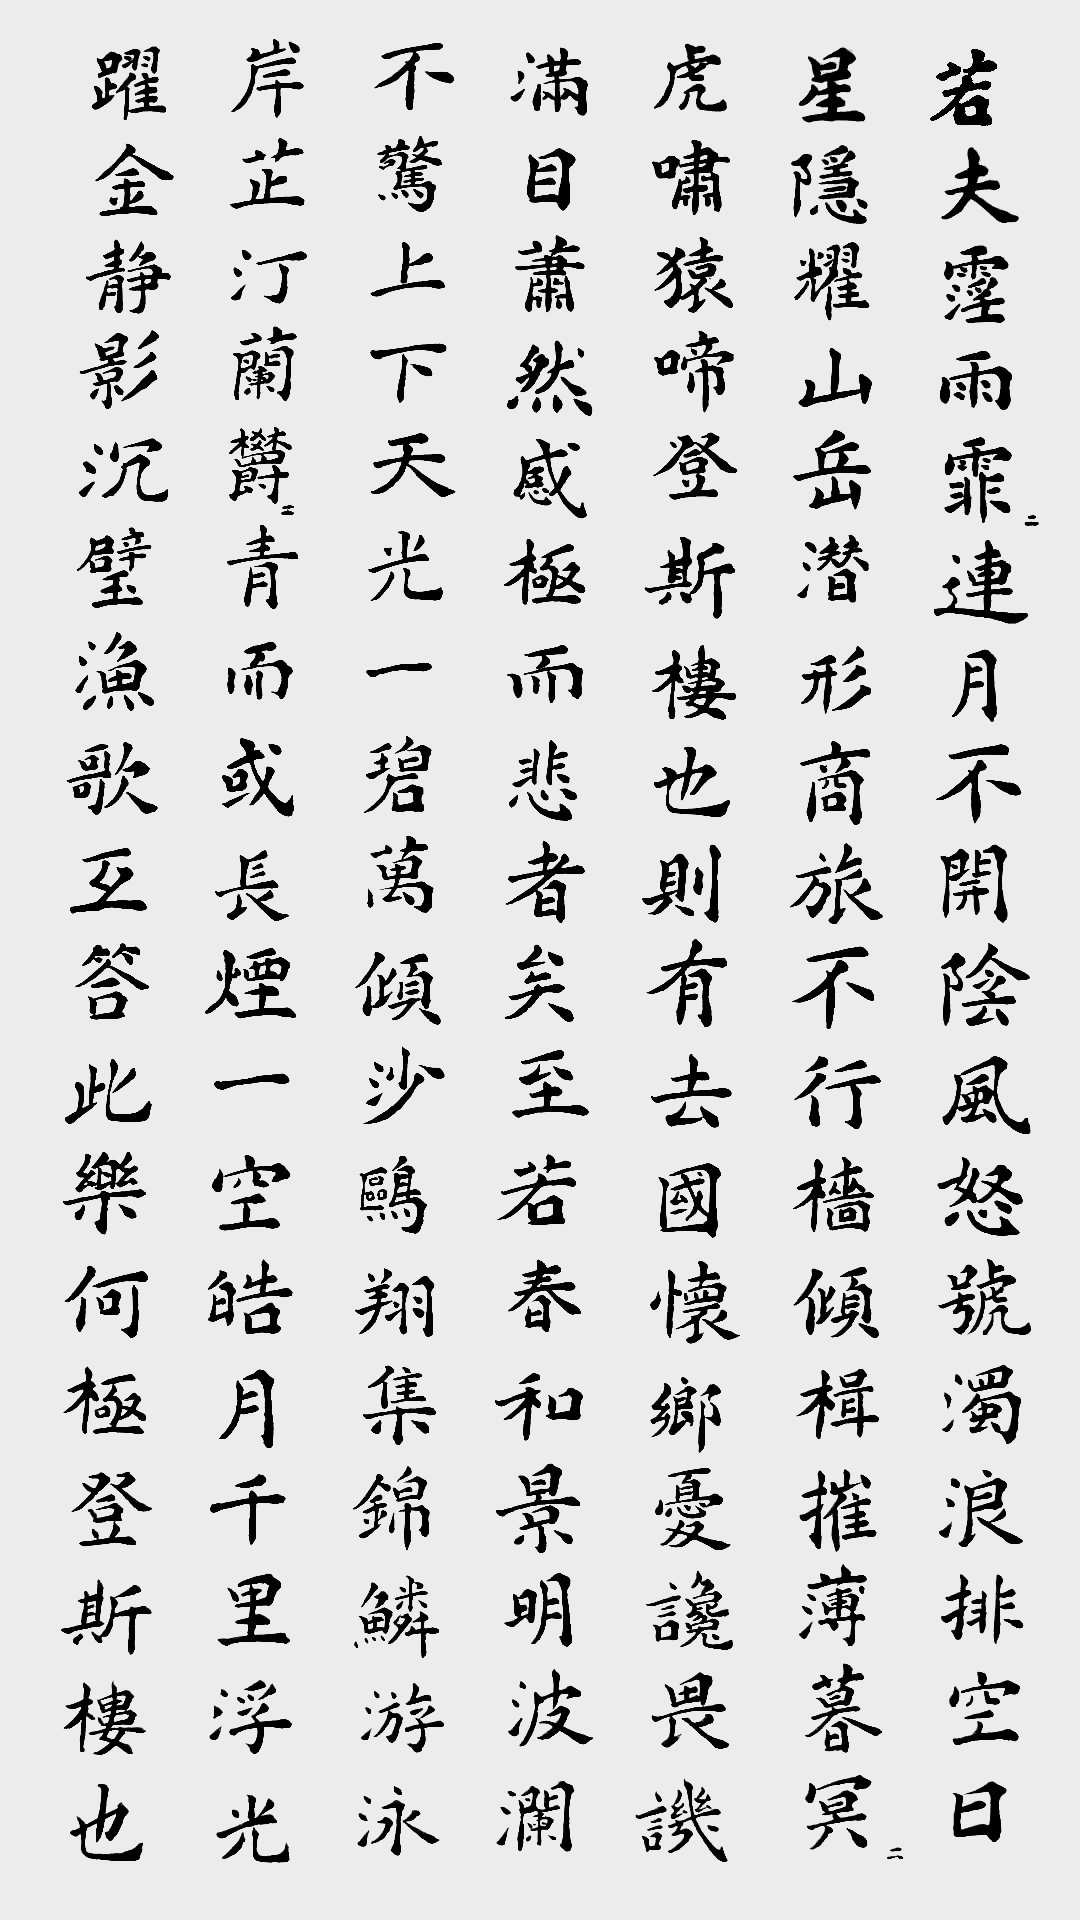 若夫霪雨霏〻連月不開陰風怒號濁浪排空日
星隱耀山岳潜形商旅不行檣傾楫摧薄暮冥〻
虎嘯猿啼登斯樓也則有去國懷鄉憂讒畏譏
滿目蕭然感極而悲者矣至若春和景明波瀾
不驚上下天光一碧萬傾沙鷗翔集錦鱗游泳
岸芷汀蘭欝〻青而或長煙一空皓月千里浮光
躍金静影沉璧漁歌互答此樂何極登斯樓也